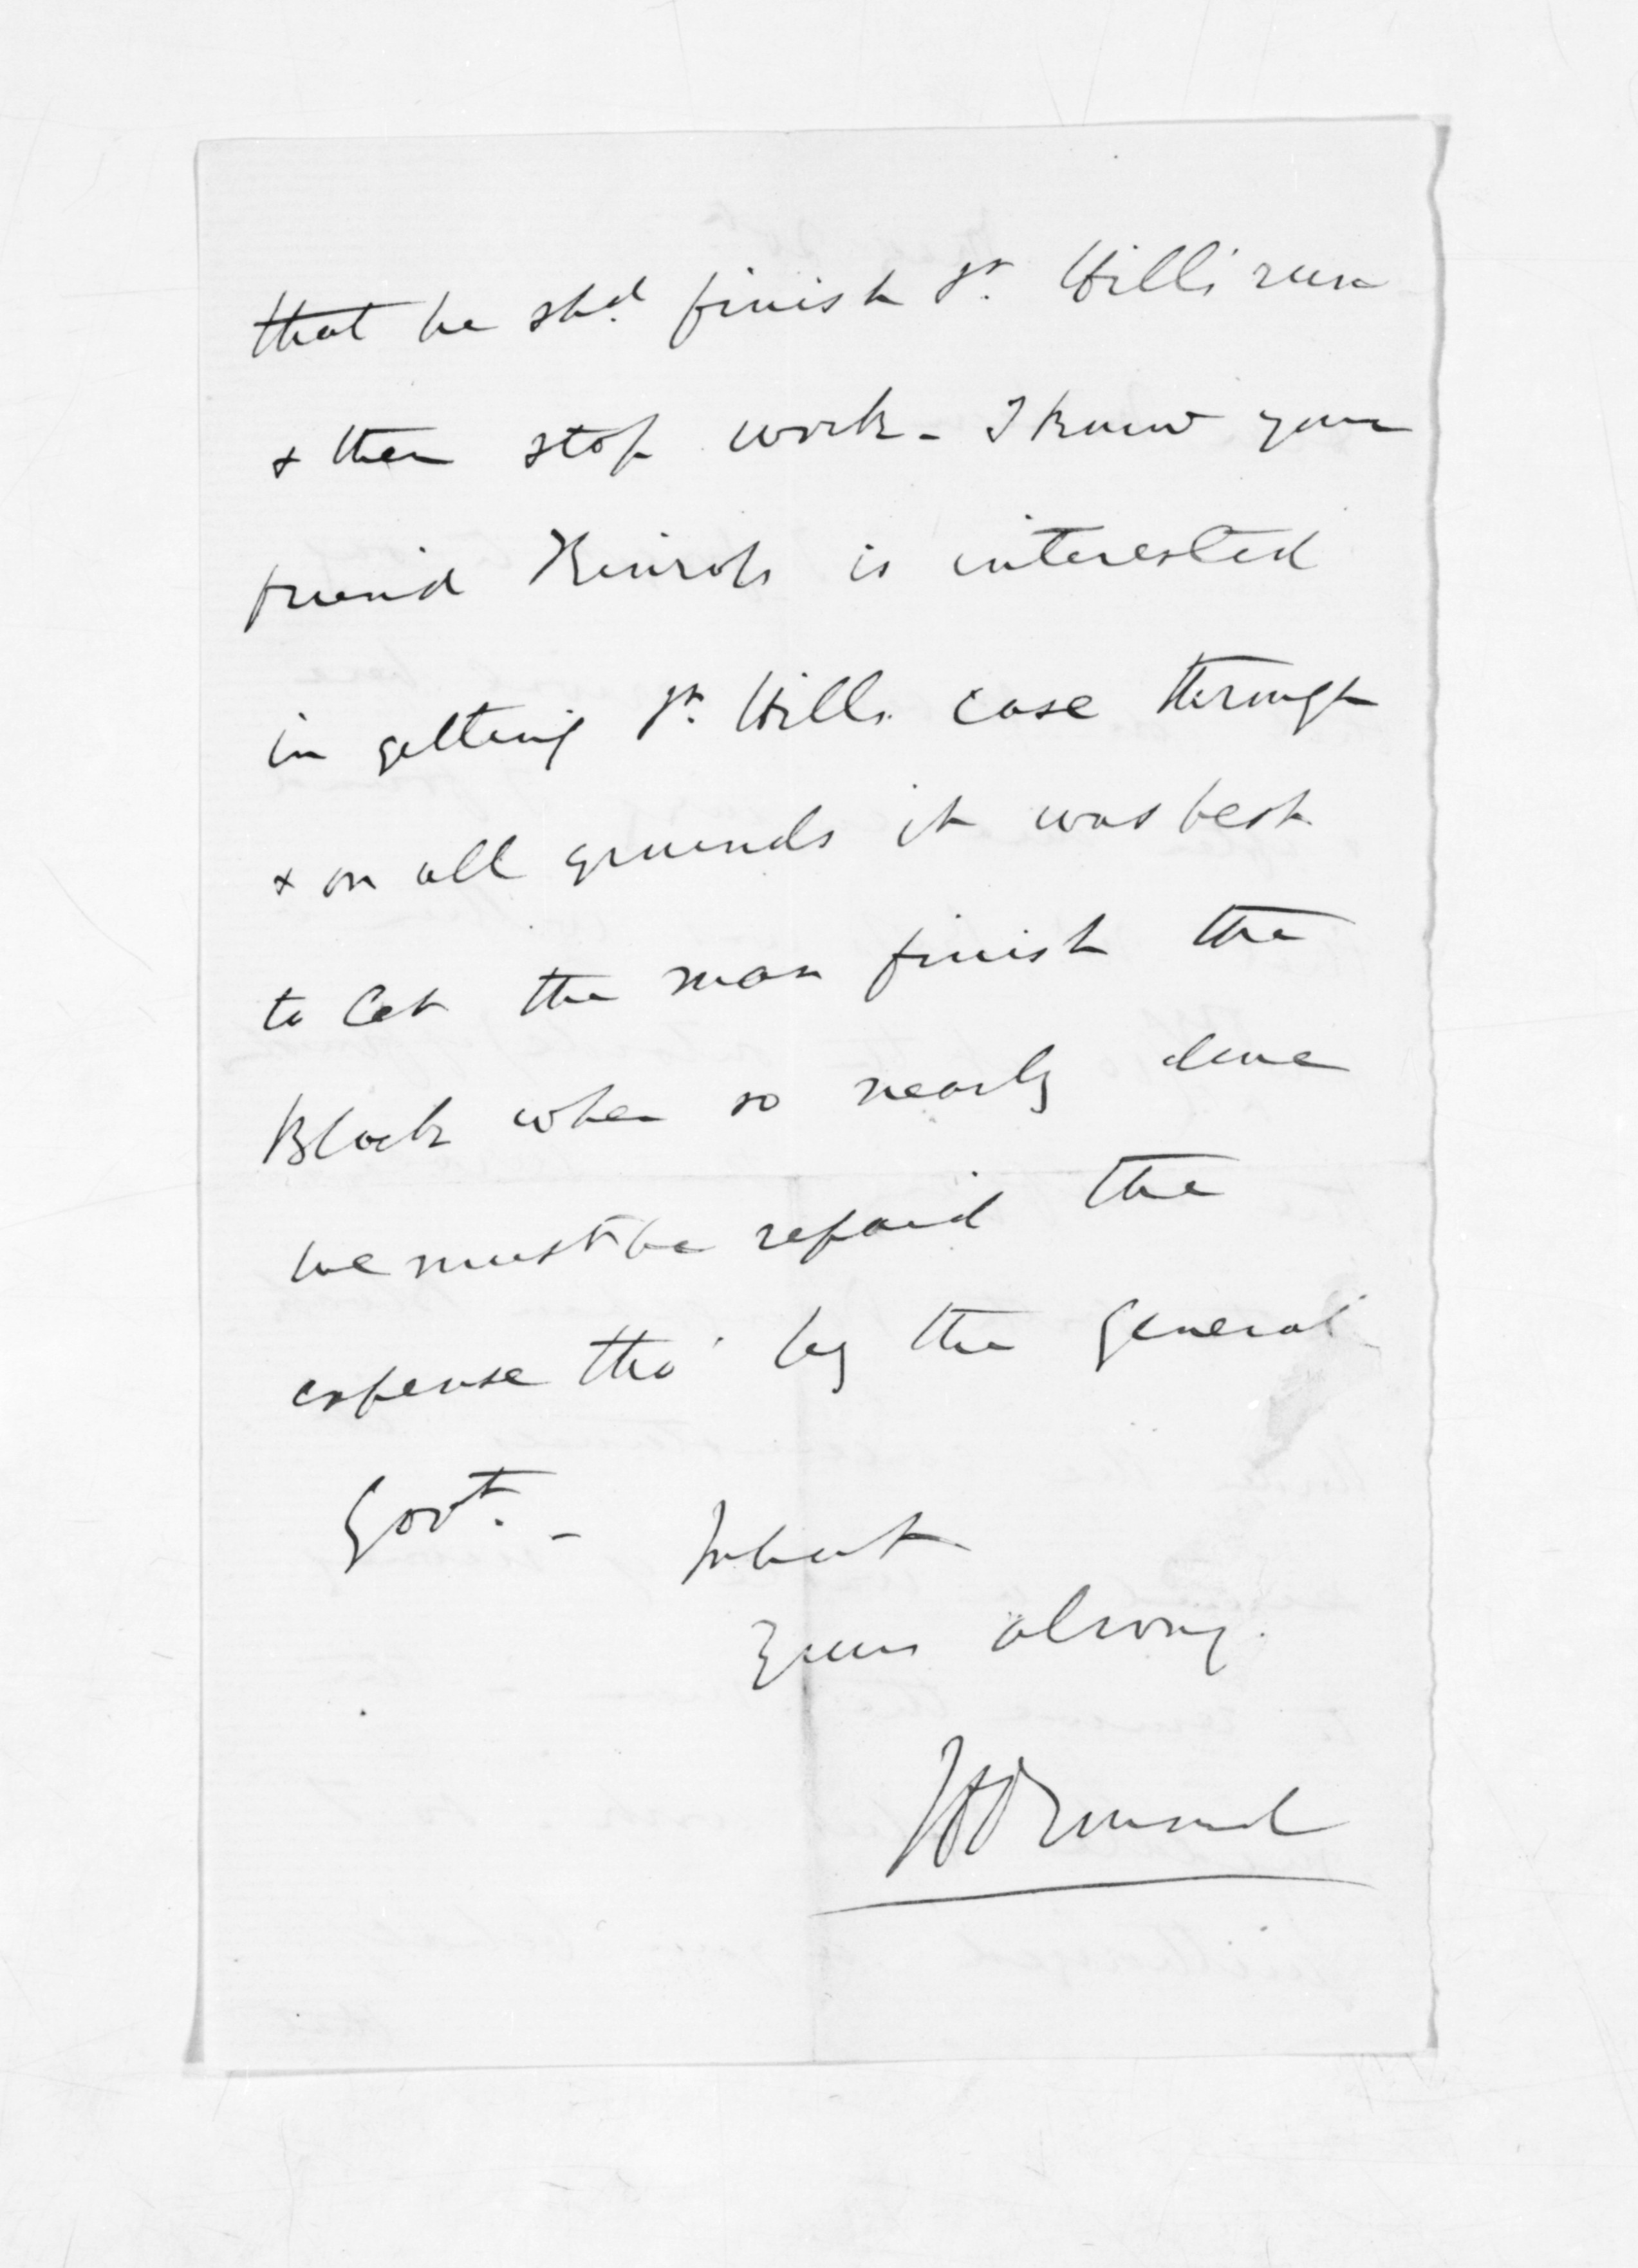 that he shd. finish Jn. Hills run
& then stop work - I know your
friend Kinross is interested
in getting Jn. Hills case through
& on all grounds it was best
to let the man finish the
Block when so nearly done
we must be repaid the
expense tho' by the General
Govt. -
In haste
Yours always.
JDOrmond